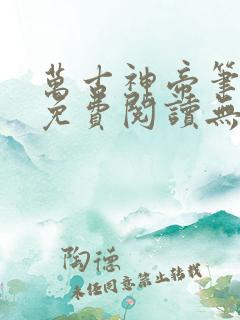 萬古神帝筆
免費閱讀無
陶德
未經同意禁止轉載